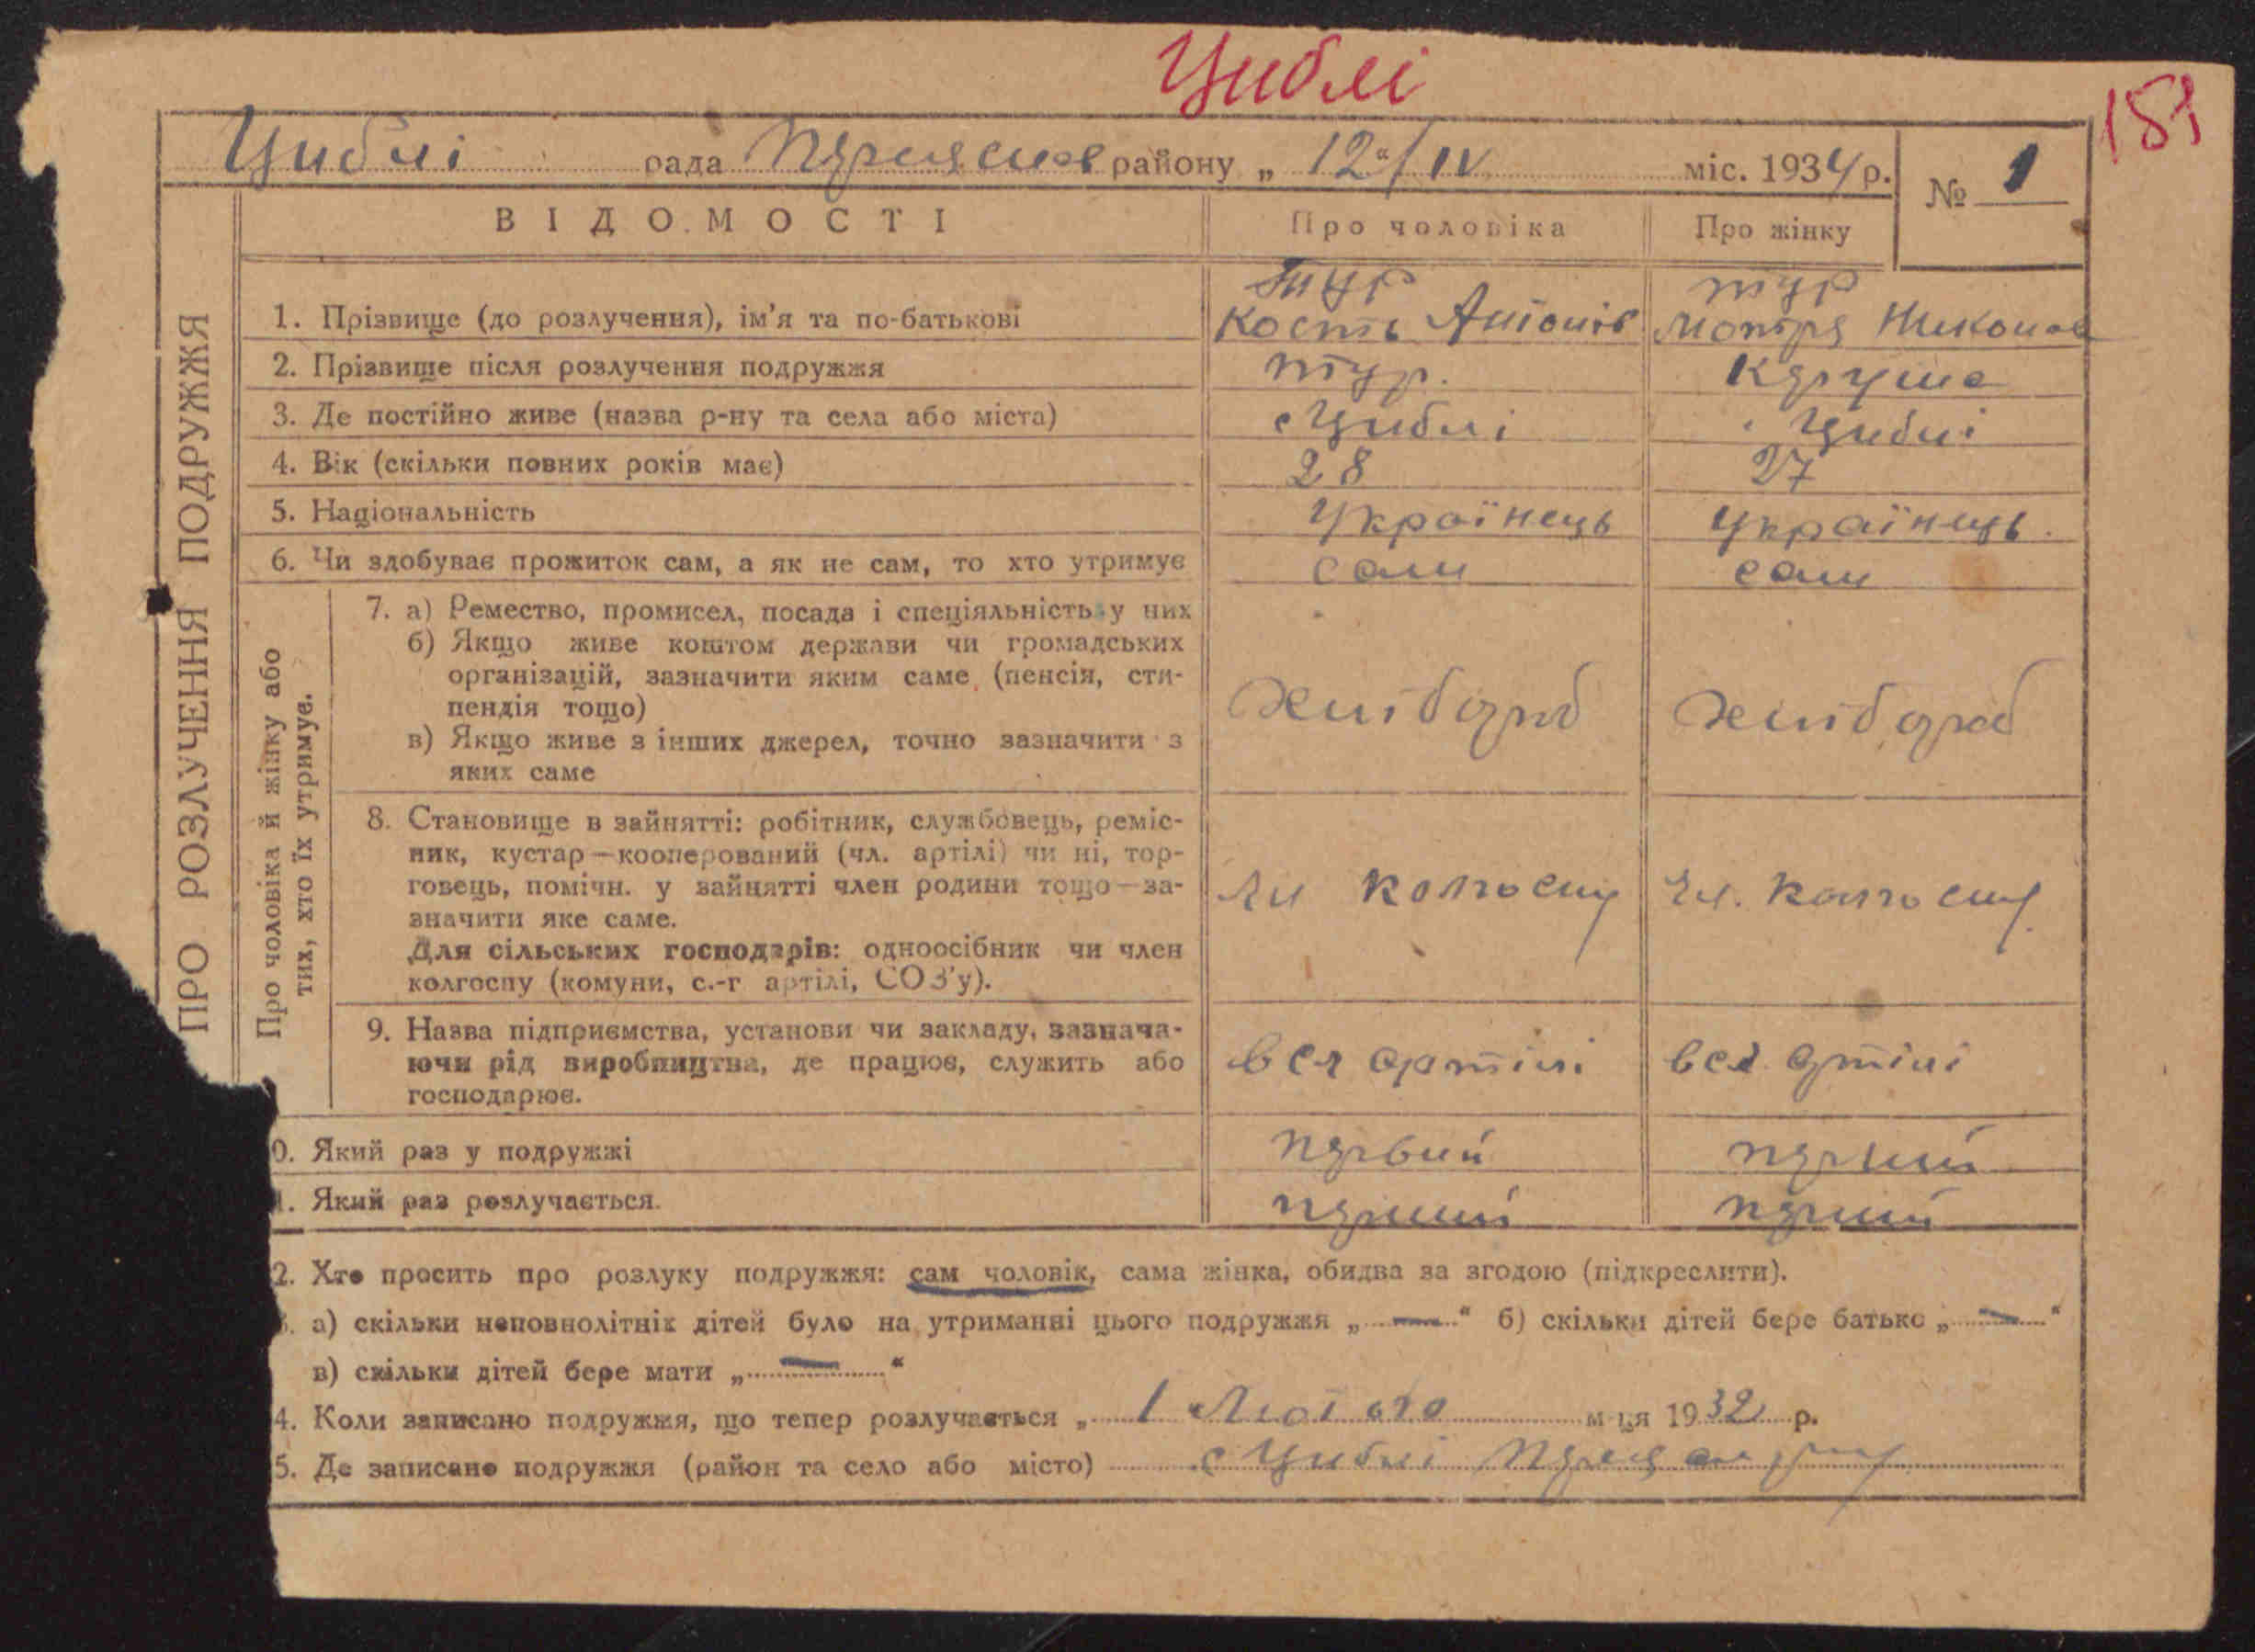 Циблі
151
Циблі рада Переяслов району „ 12 “/ IV міс. 1934 р.
№ 1
ВІДОМОСТІ
Про чоловіка
Про жінку
ПРО РОЗЛУЧЕННЯ ПОДРУЖЖЯ
1. Прізвище (до розлучення), ім'я та по-батькові
Тур
Кость Антонів
тур
Мотря Никонов
2. Прізвище після розлучення подружжя
тур.
3. Де постійно живе (назва р-ну та села або міста)
с Циблі
с Циблі
4. Вік (скільки повних років має)
28
27
5. Національність
Українець
Українець.
6. Чи здобуває прожиток сам, а як не сам, то хто утримує
сам
сам
Про чоловіка й жінку або
тих, хто їх утримує.
7. а) Ремество, промисел, посада і спеціяльність у них
б) Якщо живе коштом держави чи громадських
організацій, зазначити яким саме (пенсія, сти-
пендія тощо)
в) Якщо живе з інших джерел, точно зазначити з
яких саме
Хлібороб
Хлібороб
8. Становище в зайнятті: робітник, службовець, реміс-
ник, кустар—кооперований (чл. артілі) чи ні, тор-
говець, помічн. у зайнятті член родини тощо—за-
значити яке саме.
Для сільських господарів: одноосібник чи член
колгоспу (комуни, с.-г артілі, СОЗ'у).
Чл колгоспу
Чл. колгоспу
9. Назва підприємства, установи чи закладу, зазнача-
ючи рід виробництва, де працює, служить або
господарює.
в с г артілі
в с г артілі
0. Який раз у подружжі
первий
перший
1. Який раз розлучається.
перший
перший
2. Хто просить про розлуку подружжя: сам чоловік, сама жінка, обидва за згодою (підкреслити).
3. а) скільки неповнолітніх дітей було на утриманні цього подружжя „ — “ б) скільки дітей бере батько „ — “
в) скільки дітей бере мати „ — “
4. Коли записано подружжя, що тепер розлучається „ 1 “ Лютого м-ця 1932 р.
5. Де записано подружжя (район та село або місто) с Циблі